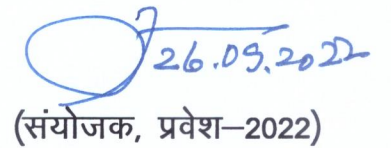 26.09.2022
(संयोजक, प्रवेश–2022)